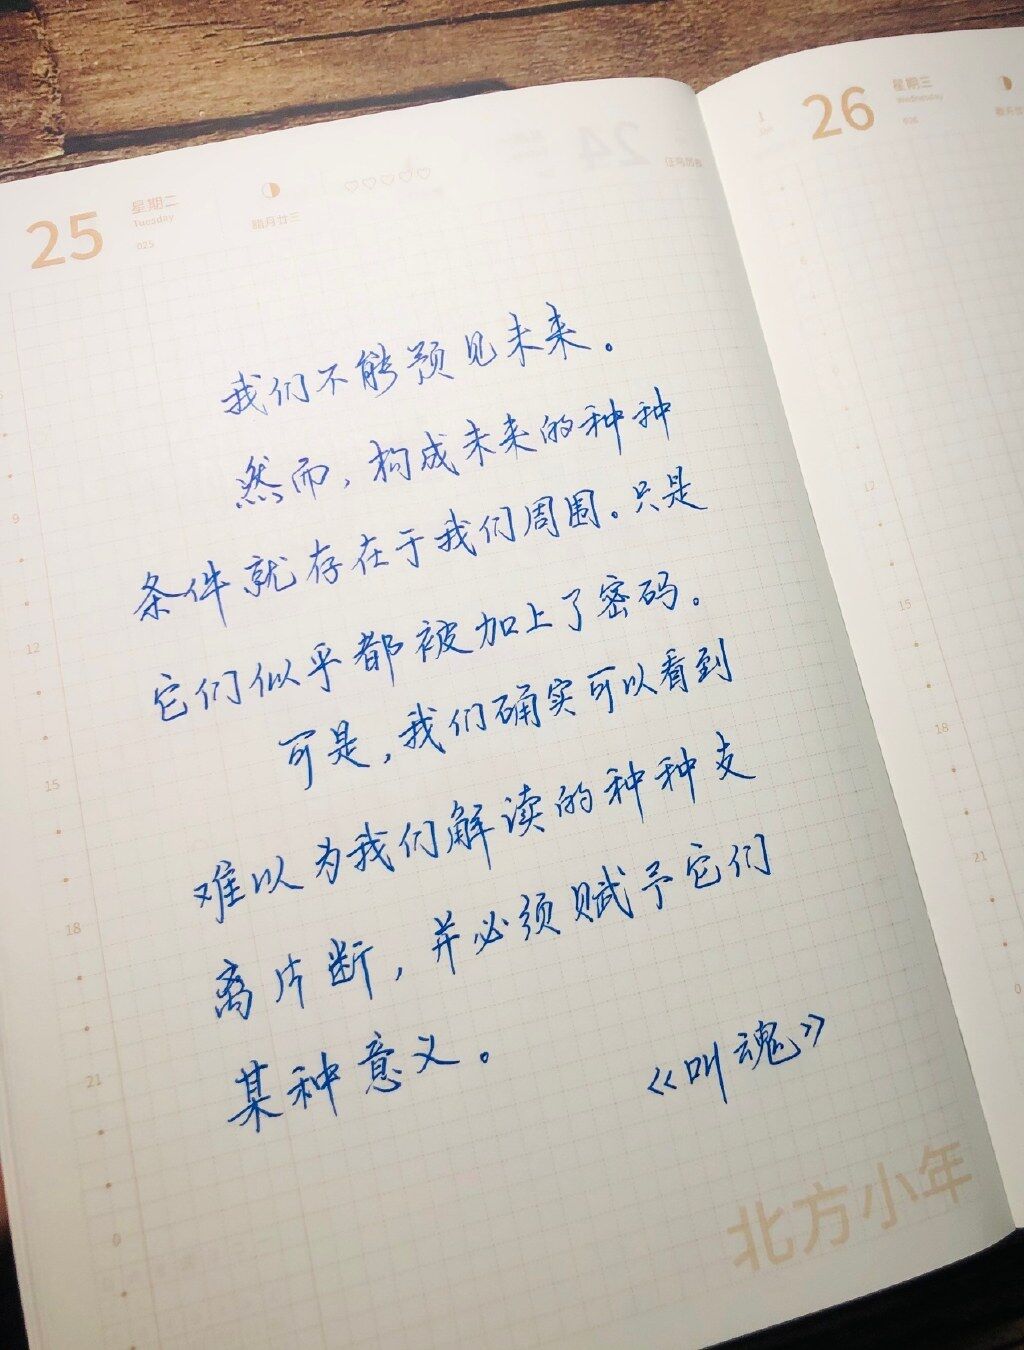 25
星期二
Tuesday
025
腊月廿三
26
星期三
Wednesday
026
1
我们不能预见未来。
然而,构成未来的种种
条件就存在于我们周围。只是
它们似乎都被加上了密码。
可是,我们确实可以看到
难以为我们解读的种种支
离片断,并必须赋予它们
某种意义。
《叫魂》
北方小年
9
12
15
18
21
0
12
15
18
21
0